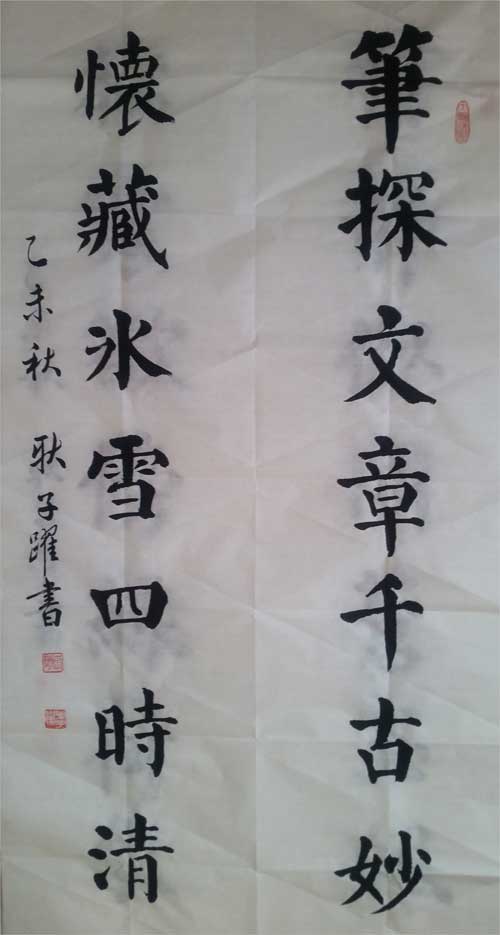 筆探文章千古妙
懷藏氷雪四時清
乙未秋 耿子躍書